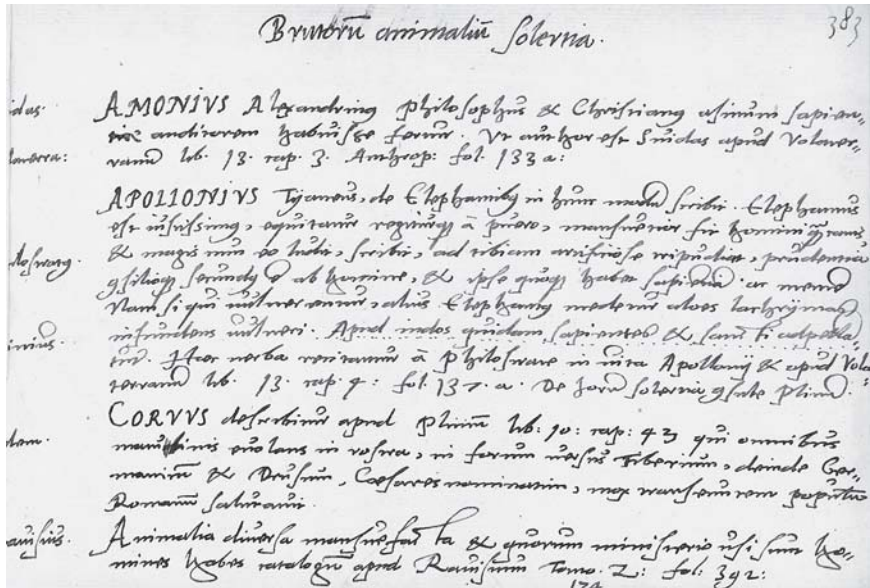 383
Brutorū animaliū solertia.
idas.
AMONIVS Alexandrinꝰ Philosophus & Christianꝰ asinum sapien„
tiae auditorem habuisse fertur. Vt author est Suidas apud Volater„
ranū lib. 13. cap. 3. Anthrop: fol. 133 a:
laterra:
APOLLONIVS Tyaneus, de Elephantibꝰ in hunc modū scribit. Elephantus
est iustissimus, equitatur regiturqꝫ à puero, mansuetior fit homini
& magis cum eo ludit, scribit, ad tibiam artificiose tripudiat, prudentia
ilostratꝰ.
ꝯsilioqꝫ secundꝰ ē ab homine, & ipse quoqꝫ habet sapientiā.
Nam si qui vulnerentur, alius Elephantꝰ medetur aloes lachrymas
infundens vulneri. Apud indos quidam sapientes &
inius.
tur. Haec verba recitantur à Philostrate in vita Apollonij & apud Vola
terranū lib. 13. cap. 4: fol. 137. a. De horū solertia ꝯsule Pliniū.
CORVVS describitur apud Pliniū lib: 10: cap: 43 qui omnibus
dem.
matutinis evolans in rostra, in forum versus Tiberium, deinde Ger„
manicū & Drusum, Caesares nominatim, mox transeuntem populū
Romanum salutavit.
avisius.
Animalia diversa mansuefacta & quorum ministerio usi sunt ho„
mines habes catalogū apud Ravisium Tomo. 2: fol: 392: